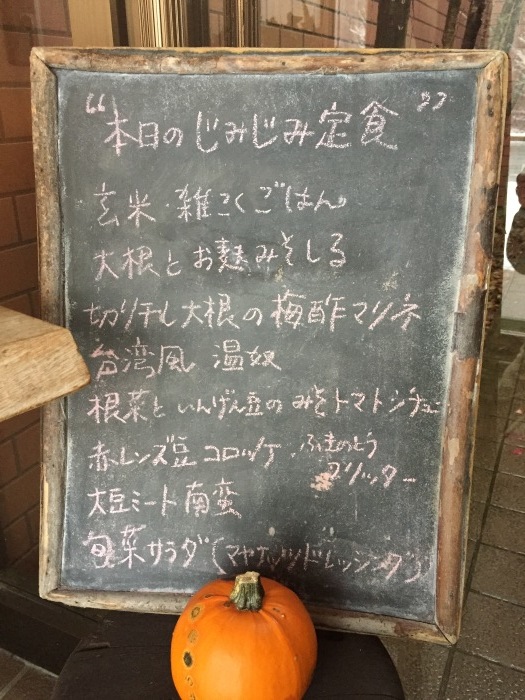 “本日のじみじみ定食”
玄米・雑こくごはん
大根とお麩みそしる
切り干し大根の梅酢マリネ
台湾風 温奴
根菜といんげん豆のみそトマトシチュー
赤レンズ豆コロッケ・ふきのとうフリッター
大豆ミート南蛮
旬菜サラダ(マヤナッツドレッシング)